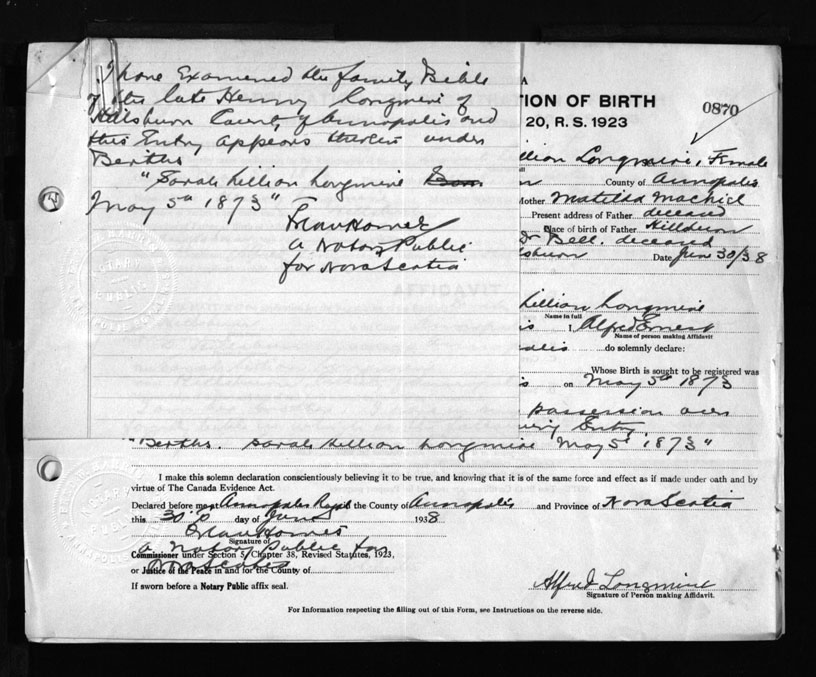 I have Examined the family Bible
of the late Henry Longmire of
Hillsburn County of Annapolis and
this Entry appears therein under
Births
"Sarah Lillian Longmire
May 5th 1873"
a Notary Public
for Nova Scotia
A
TION OF BIRTH
0870
20, R. S. 1923
illian Longmire, Female
County of Annapolis
Mother Matilda
Present address of Father deceased
Place of birth of Father Hillsburn
Dr Bell. deceased
lsburn Date June 30/38
Lillian Longmire
Name in full
is I, Alfred Ernest
Name of person making Affidavit
olis do solemnly declare:
Whose Birth is sought to be registered was
is on May 5th 1873
possession
Entry
"Births. Sarah Lillian Longmire May 5th 1873"
I make this solemn declaration conscientiously believing it to be true, and knowing that it is of the same force and effect as if made under oath and by
virtue of The Canada Evidence Act.
Declared before me at Annapolis Royal the County of Annapolis and Province of Nova Scotia
this 30th day of June 1938
Signature of
a Notary Public for
Commissioner under Section 5, Chapter 38, Revised Statutes, 1923,
Nova Scotia
or Justice of the Peace in and for the County of
If sworn before a Notary Public affix seal.
Alfred Longmire
Signature of Person making Affidavit.
For Information respecting the filling out of this Form, see Instructions on the reverse side.